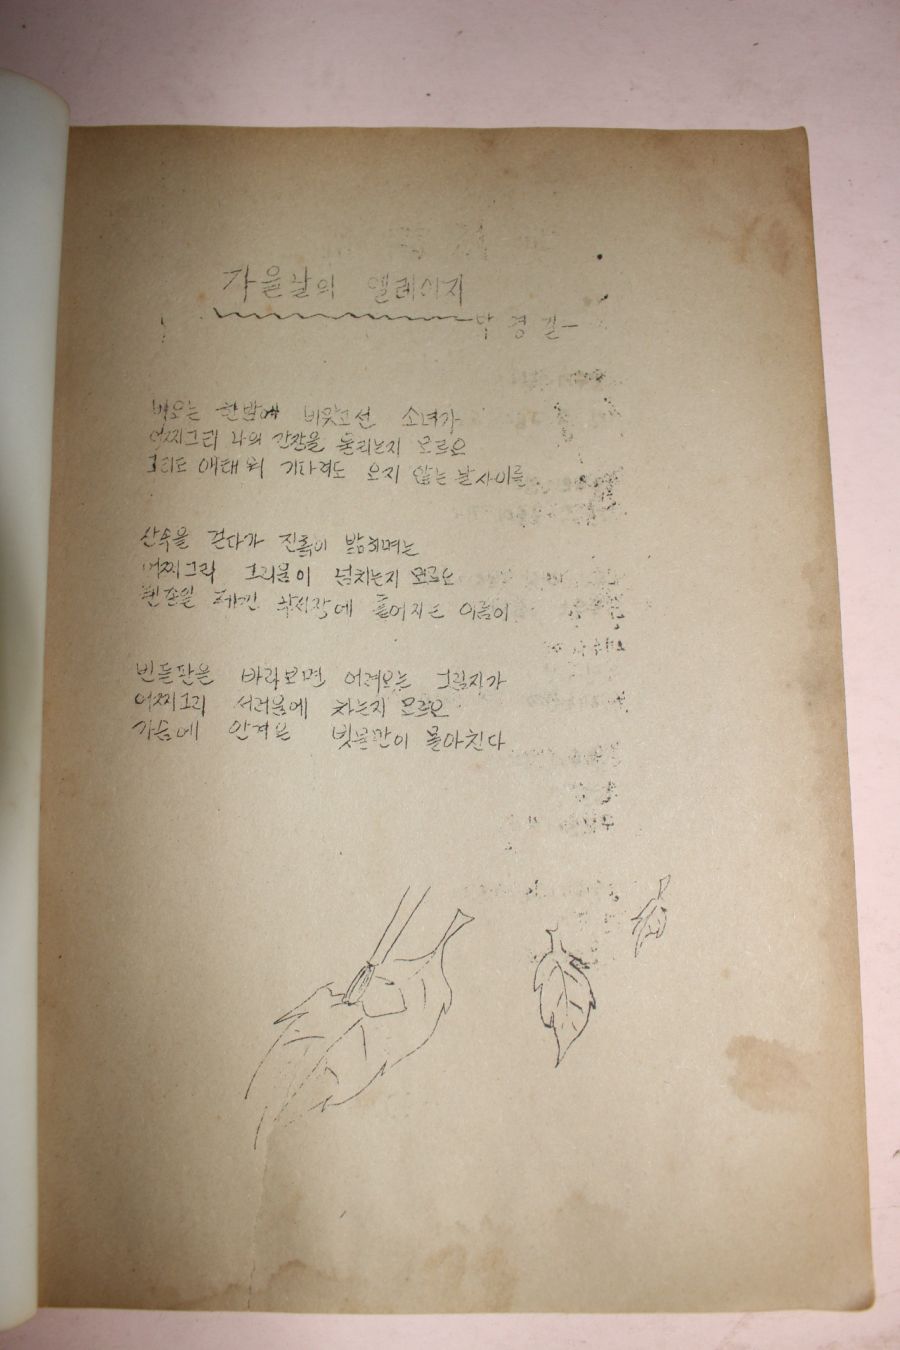 가을날의 엘레이지
박경길
비오는 한밤에 비맞고선 소녀가
어찌그리 나의 간장을 울리는지 모르오
그리도 애태워 기다려도 오지 않는 날사이를
산속을 걷다가 진흙이 밟히며는
어찌그리 그리움이 넘치는지 모르오
흩어지는 이름이
빈들판을 바라보면 어려오는 그림자가
어찌그리 서러움에 차는지 모르오
가슴에 안겨온 빗물만이 몰아친다